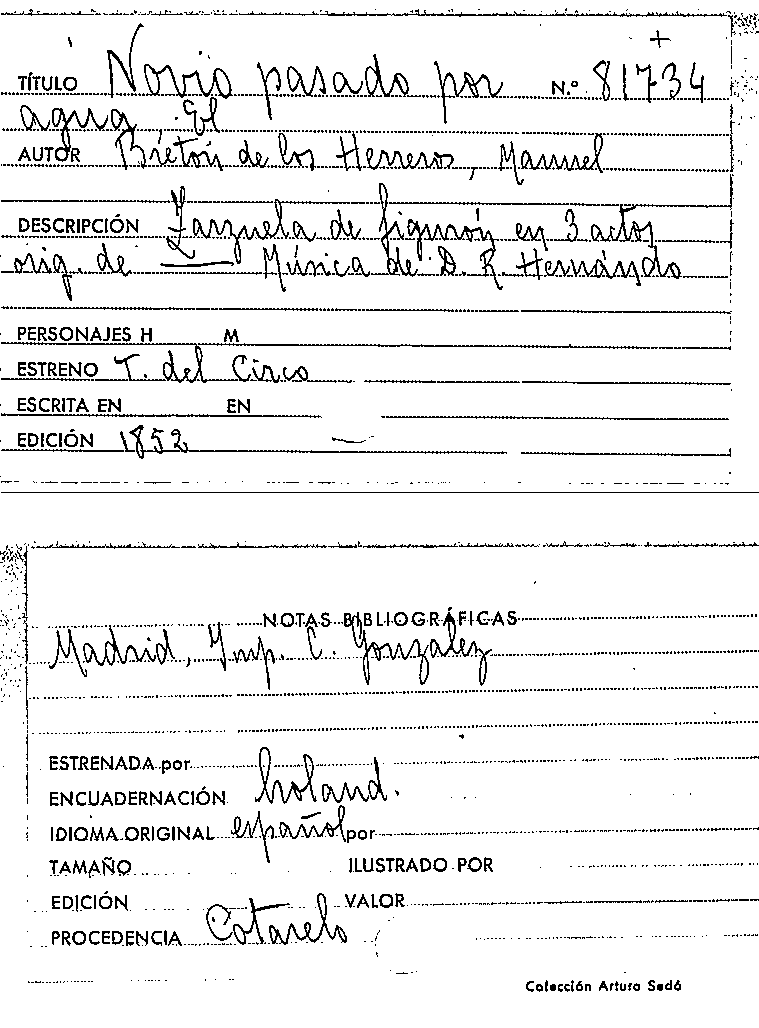 +
TÍTULO Novio pasado por N.º 81734
agua. El
AUTOR Bretón de los Herreros, Manuel
DESCRIPCIÓN Zarzuela de figurón en 3 actos
orig. de —— Música de D. R. Hernándo
PERSONAJES H M
ESTRENO T. del Circo
ESCRITA EN EN
EDICIÓN 1852 —
NOTAS BIBLIOGRÁFICAS
Madrid, Imp. C. Gonzalez
ESTRENADA por
ENCUADERNACIÓN holand.
IDIOMA ORIGINAL español por
TAMAÑO ILUSTRADO POR
EDICIÓN VALOR
PROCEDENCIA Cotarelo
Colección Arturo Sedó